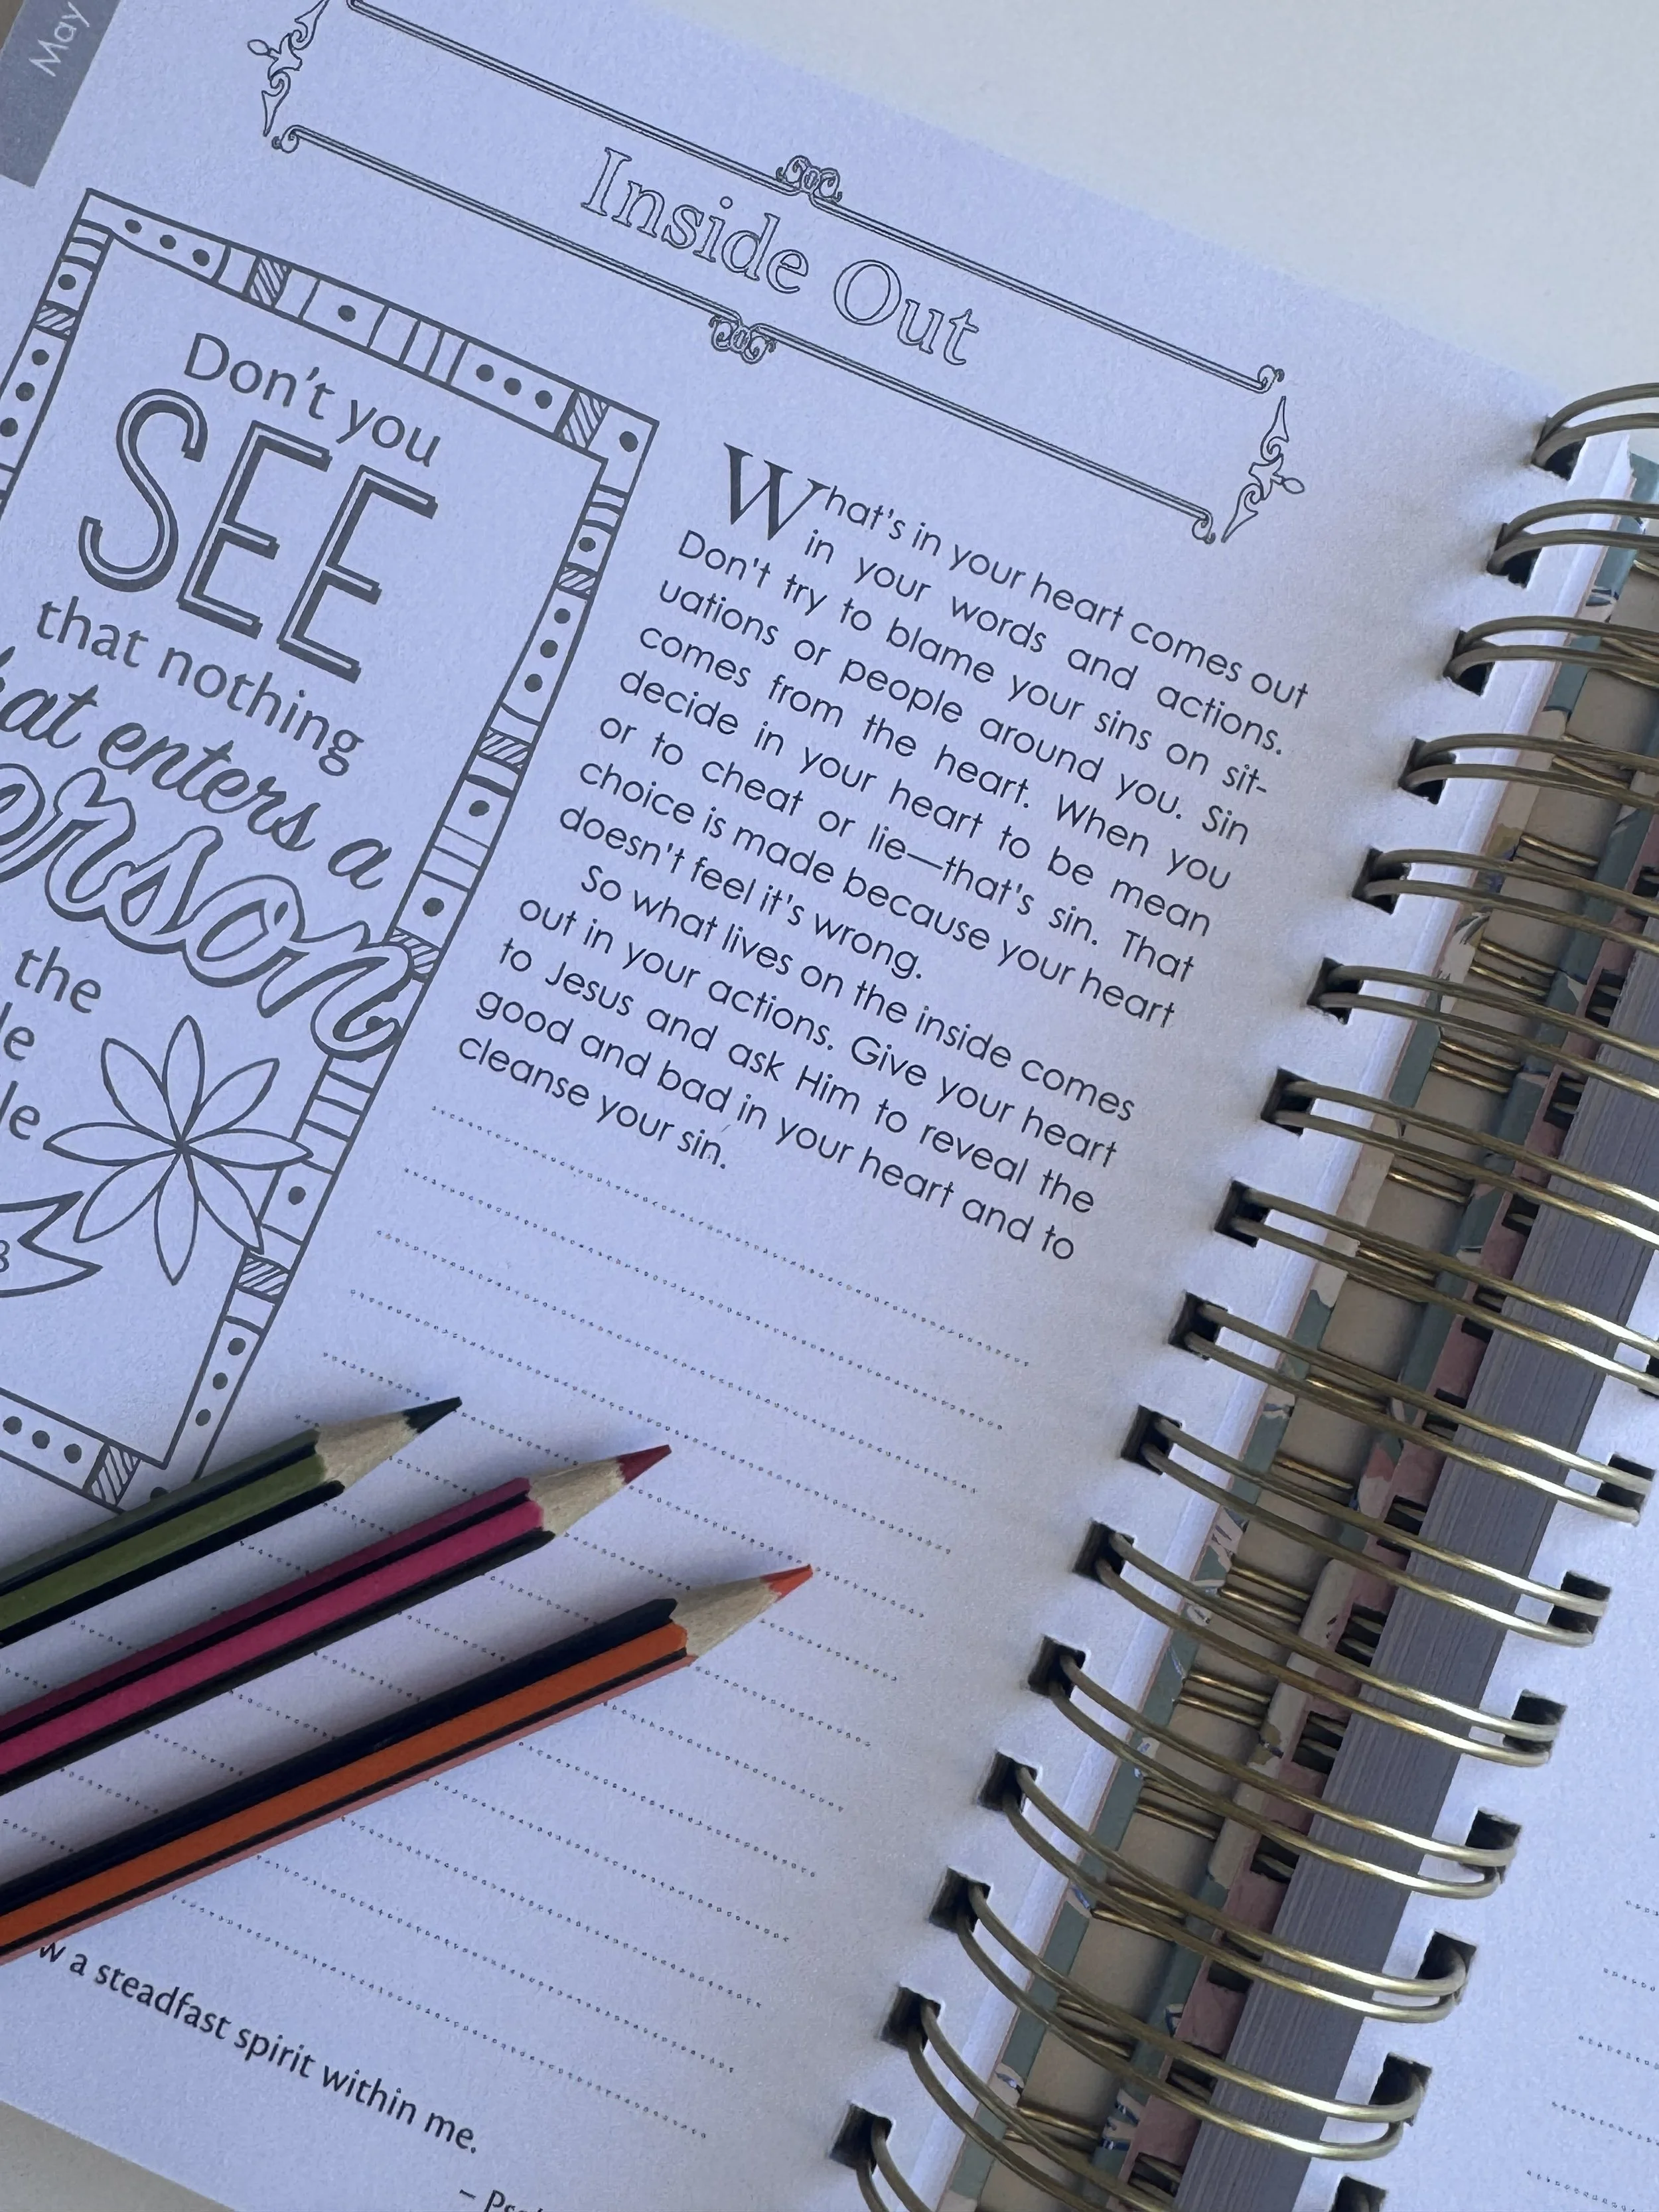 May
Inside Out
Don't you
SEE
that nothing
enters a
the
What's in your heart comes out
in your words and actions.
Don't try to blame your sins on sit-
uations or people around you. Sin
comes from the heart. When you
decide in your heart to be mean
or to cheat or lie—that's sin. That
choice is made because your heart
doesn't feel it's wrong.
So what lives on the inside comes
out in your actions. Give your heart
to Jesus and ask Him to reveal the
good and bad in your heart and to
cleanse your sin.
a steadfast spirit within me.